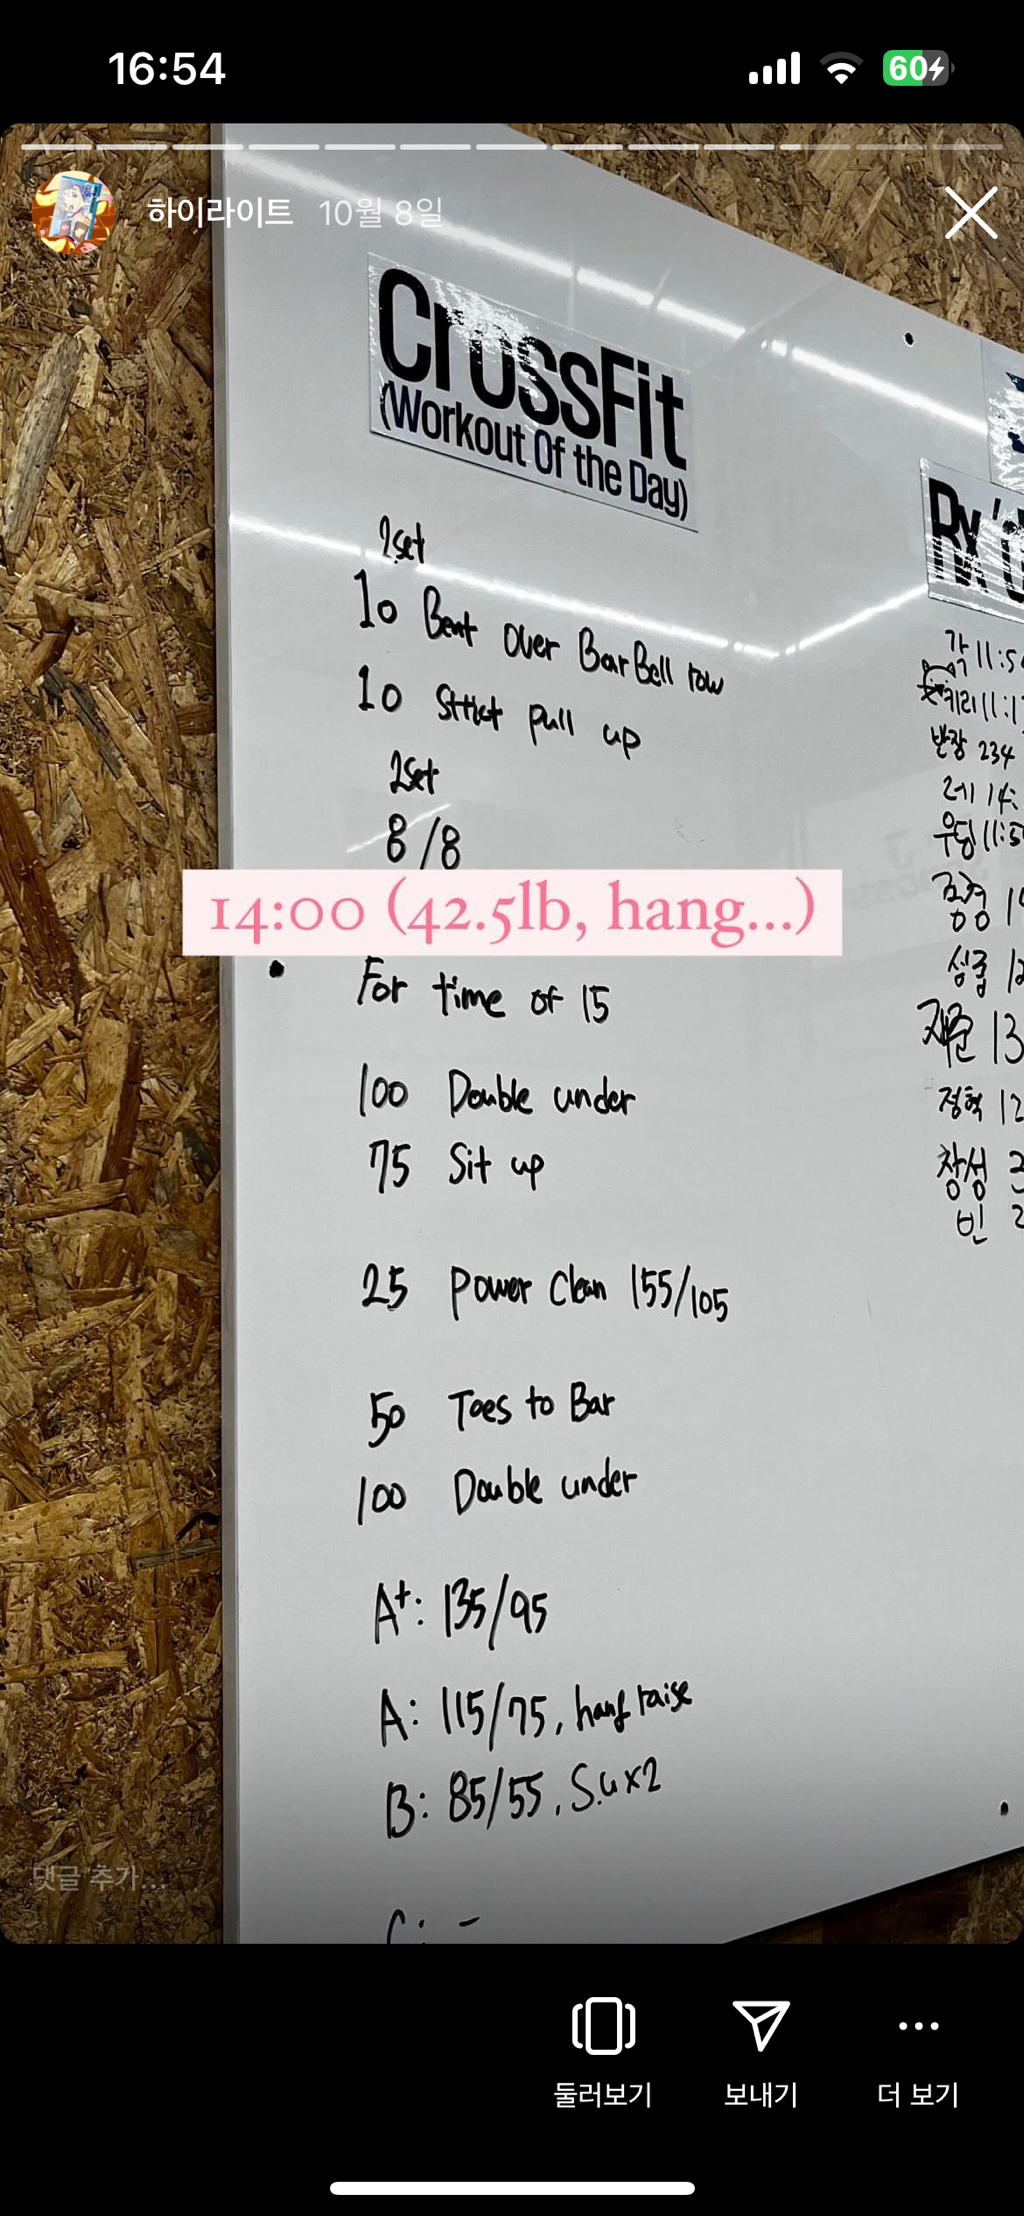 16:54
60
하이라이트 10월 8일
CrossFit
(Workout Of the Day)
2set
10 Bent over BarBell row
10 Strict pull up
2set
8/8
14:00 (42.5lb, hang...)
For time of 15
100 Double under
75 Sit up
25 power Clean 155/105
50 Toes to Bar
100 Double under
A+: 135/95
A: 115/75, hang raise
B: 85/55, S.u x2
C:
Rx'd
각 11:5
키리 11:1
반장 234
레 14:
우딩 11:5
심줍 12
지준 13
정혁 12
창성 3
빈 2
댓글 추가...
둘러보기
보내기
더 보기